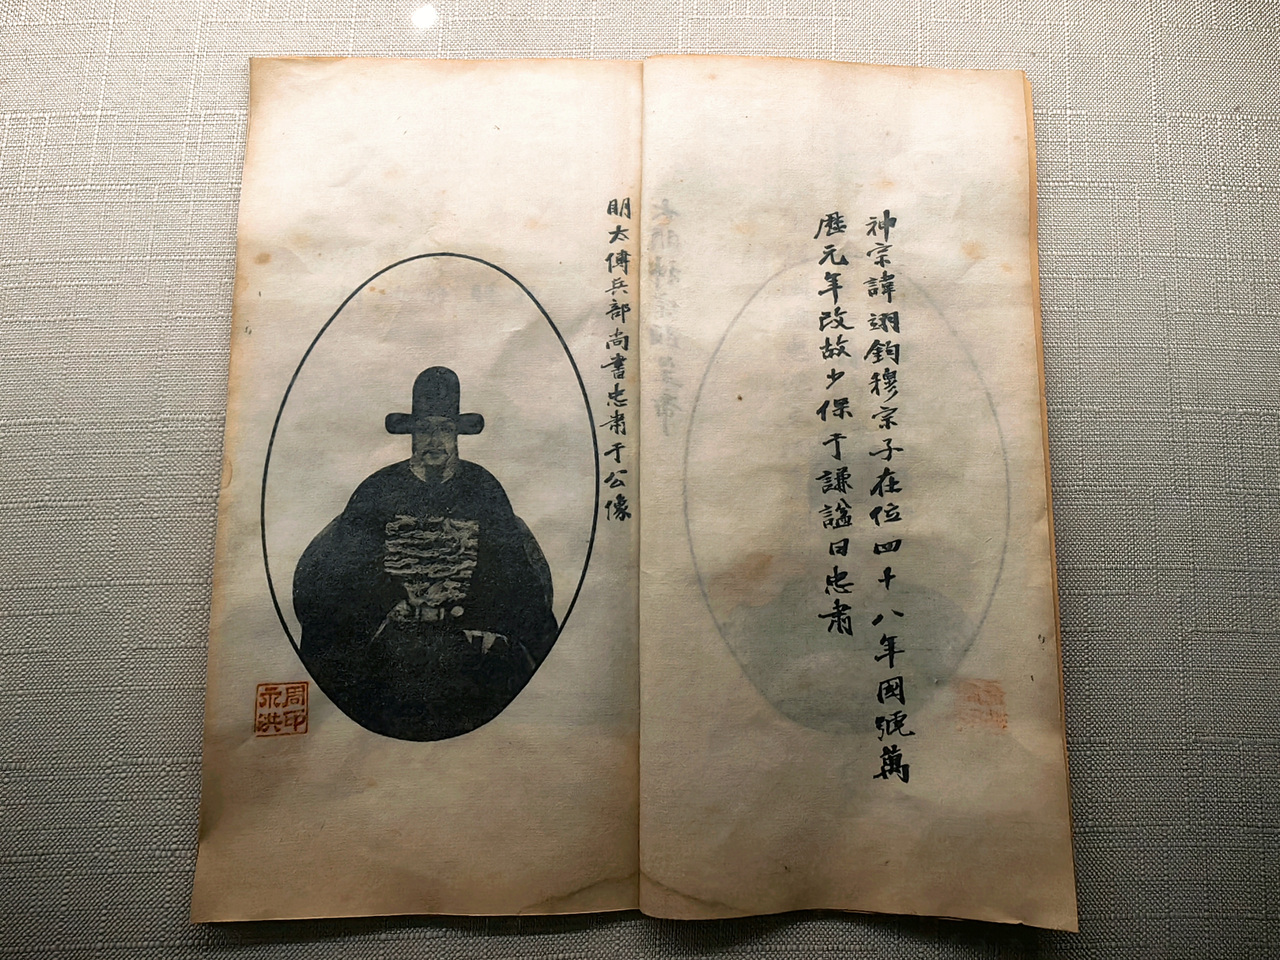 神宗諱翊鈞穆宗子在位四十八年國號萬
歷元年改故少保于謙諡曰忠肅
明太傅兵部尚書忠肅于公像
周印
永洪